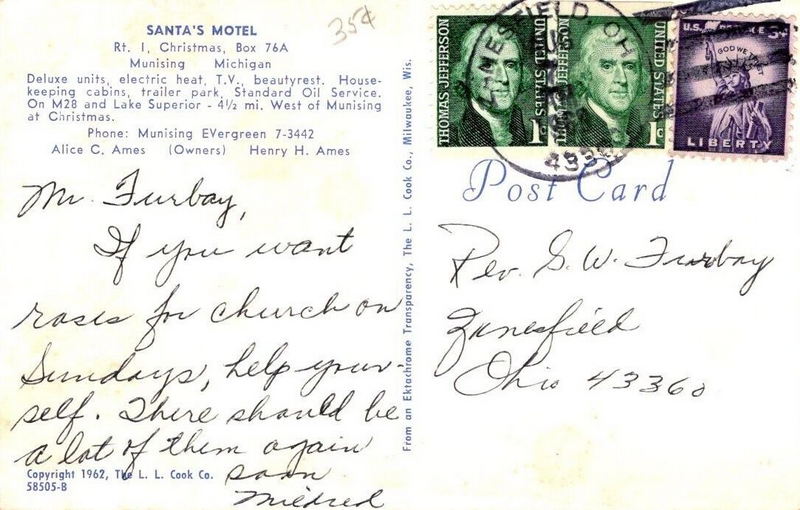 SANTA'S MOTEL
Rt. 1, Christmas, Box 76A
Munising Michigan
Deluxe units, electric heat, T.V., beautyrest. House-
keeping cabins, trailer park, Standard Oil Service.
On M28 and Lake Superior - 4½ mi. West of Munising
at Christmas.
Phone: Munising EVergreen 7-3442
Alice C. Ames (Owners) Henry H. Ames
35¢
Mr. Furbay,
If you want
roses for church on
Sundays, help your-
self. There should be
a lot of them again
soon
Mildred
Copyright 1962, The L. L. Cook Co.
58505-B
From an Ektachrome Transparency, The L. L. Cook Co., Milwaukee, Wis.
THOMAS JEFFERSON
UNITED STATES
1c
UNITED STATES
1c
U.S. POSTAGE 3¢
IN GOD WE TRUST
LIBERTY
ZANESFIELD, OH
Post Card
Rev. G. W. Furbay
Zanesfield
Ohio 43360